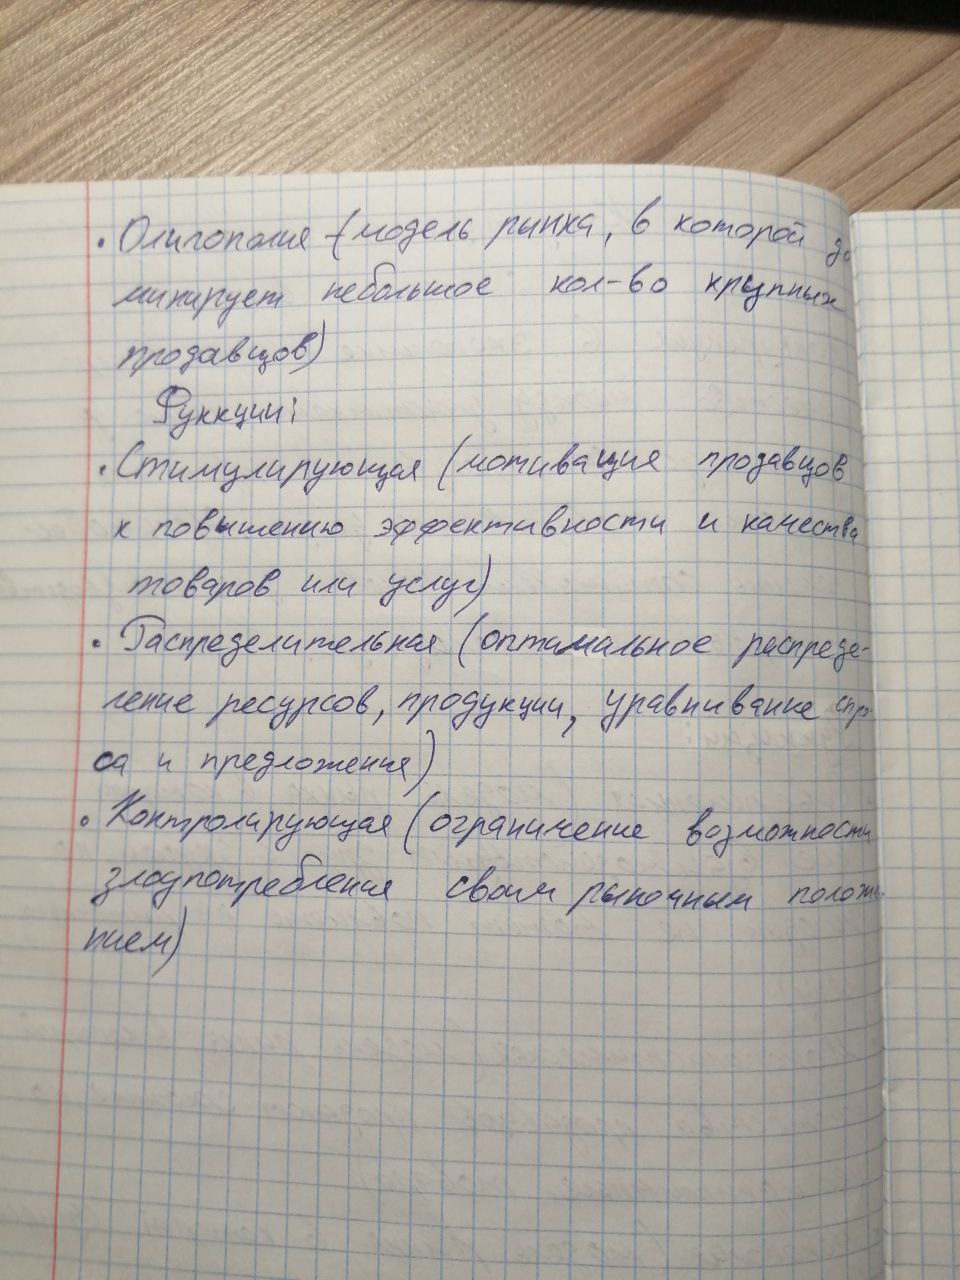 • Олигополия - (модель рынка, в которой до
минирует небольшое кол-во крупных
продавцов)
Функции:
• Стимулирующая (мотивация продавцов
к повышению эффективности и качества
товаров или услуг)
• Распределительная (оптимальное распреде-
ление ресурсов, продукции, уравнивание спро-
са и предложения)
• Контролирующая (ограничение возможности
злоупотребления своим рыночным положе-
нием)